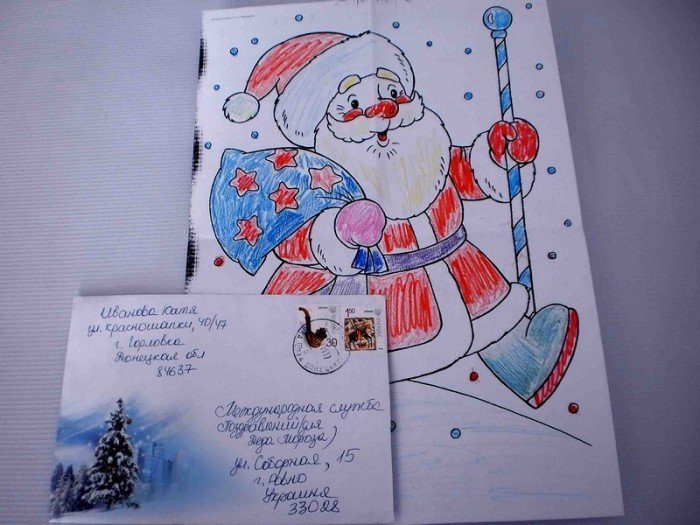 Иванова Катя
ул. Красношапки, 40/47
г. Горловка
Донецкая обл
84637
30
1.50
Международная служба
Поздравлений (для
Деда Мороза)
ул. Соборная, 15
г. Ровно
Украина
33028